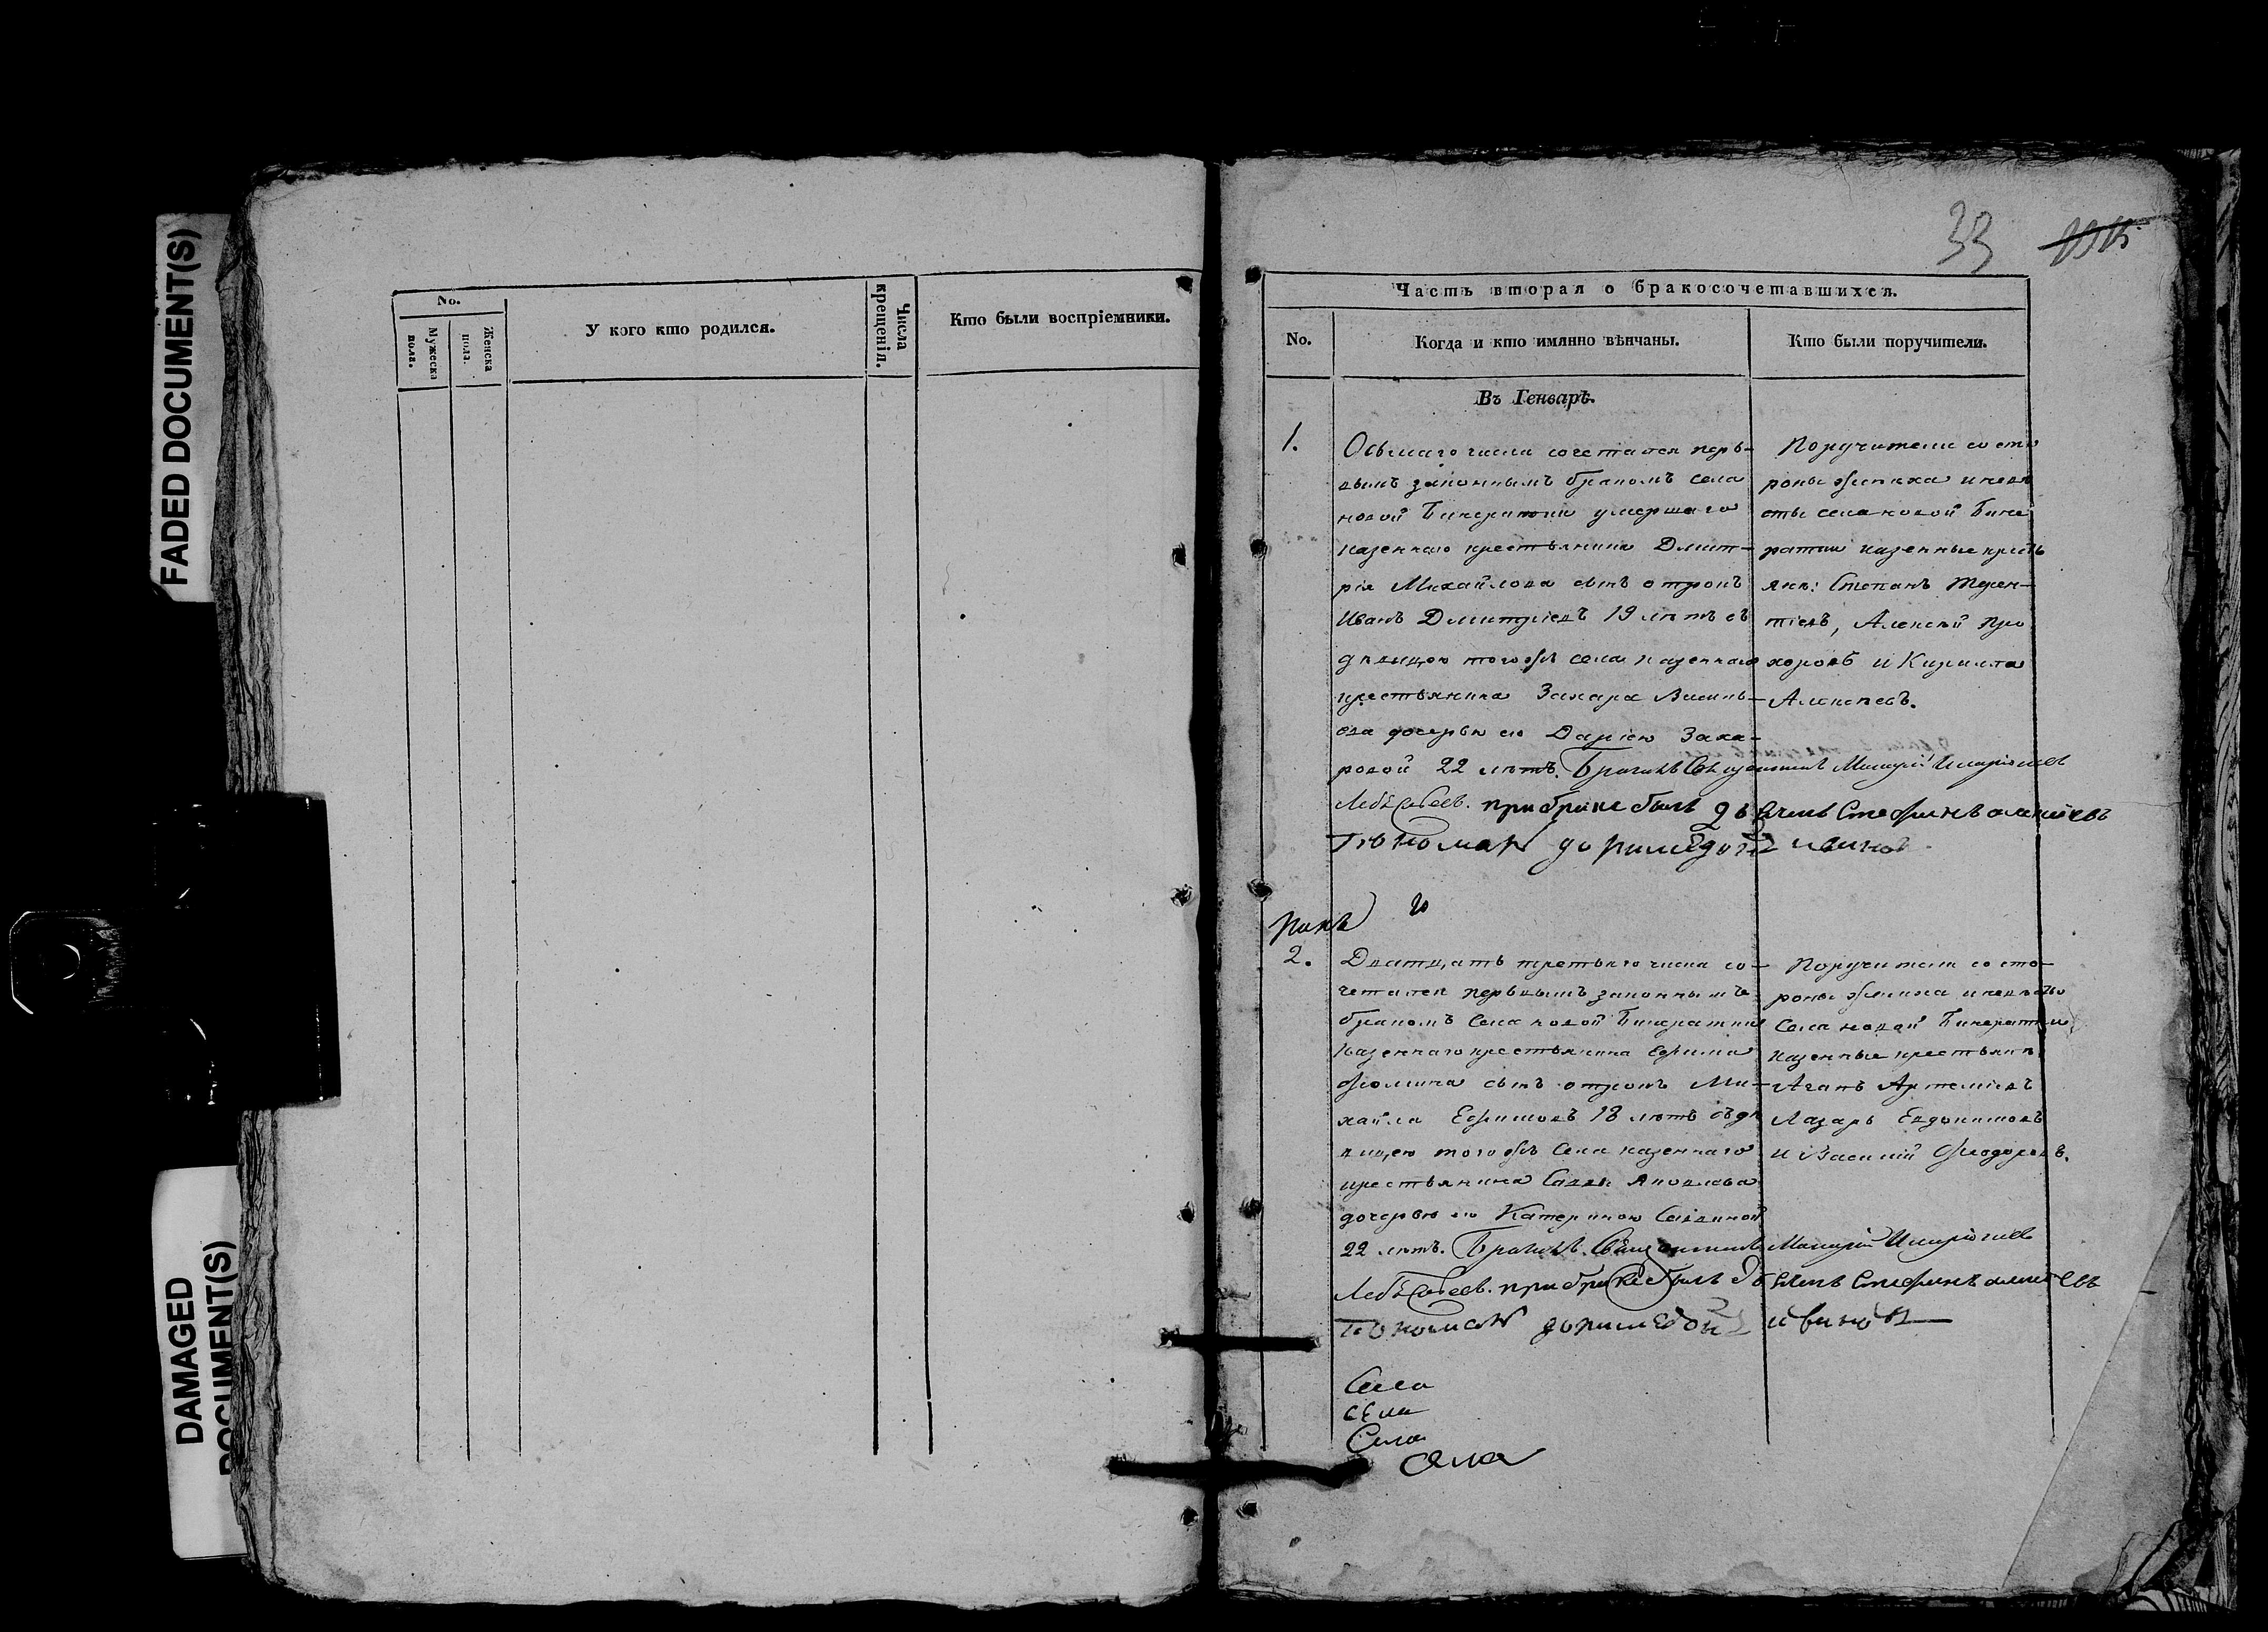 FADED DOCUMENT(S)
DAMAGED
DOCUMENT(S)
No.
Мужеска пола.
Женска пола.
У кого кто родился.
Числа крещенія.
Кто были воспріемники.
33
Часть вторая о бракосочетавшихся.
No.
Когда и кто имянно вѣнчаны.
Кто были поручители.
Въ Генварѣ.
1.
Осьмаго числа сочетался пер-
вымъ законнымъ бракомъ села
новой Бинарадки умершаго
казеннаго крестьянина Дмит-
рія Михайлова сынъ отрокъ
Иванъ Дмитріевъ 19 лѣтъ съ
дѣвицею тогожъ села казеннаго
крестьянина Захара Василь-
ева дочерью его Дарією Заха-
ровой 22 лѣтъ. Бракъ Священникъ
Лебедевъ. при браке былъ дьячекъ Стефанъ Алексіевъ
Пономарь Ивановъ
Поручители со сто
роны жениха и невѣ
сты села новой Бина
радки казенные кресть
яне: Степанъ Терен-
тіевъ, Алексѣй Про
хоровъ и Кирилла
Алексѣевъ.
2.
Двадцать третьяго числа со-
четался первымъ законнымъ
бракомъ Села новой Бинарадки
казеннаго крестьянина Ефима
Фомина сынъ отрокъ Ми-
хайла Ефимовъ 18 лѣтъ съ дѣ
вицею тогожъ Села казеннаго
крестьянина Саввы Яковлева
дочерью его Катериною Саввиной
22 лѣтъ. Бракъ Священникъ
Лебедевъ. при браке былъ дьячекъ Стефанъ Алексіевъ
Пономарь Ивановъ
Поручители со сто-
роны жениха и невѣсты
Села новой Бинарадки
казенные крестьяне
Агапъ Артеміевъ
Лазарь Евдокимовъ
и Василій Феодоровъ.
Села
села
Села